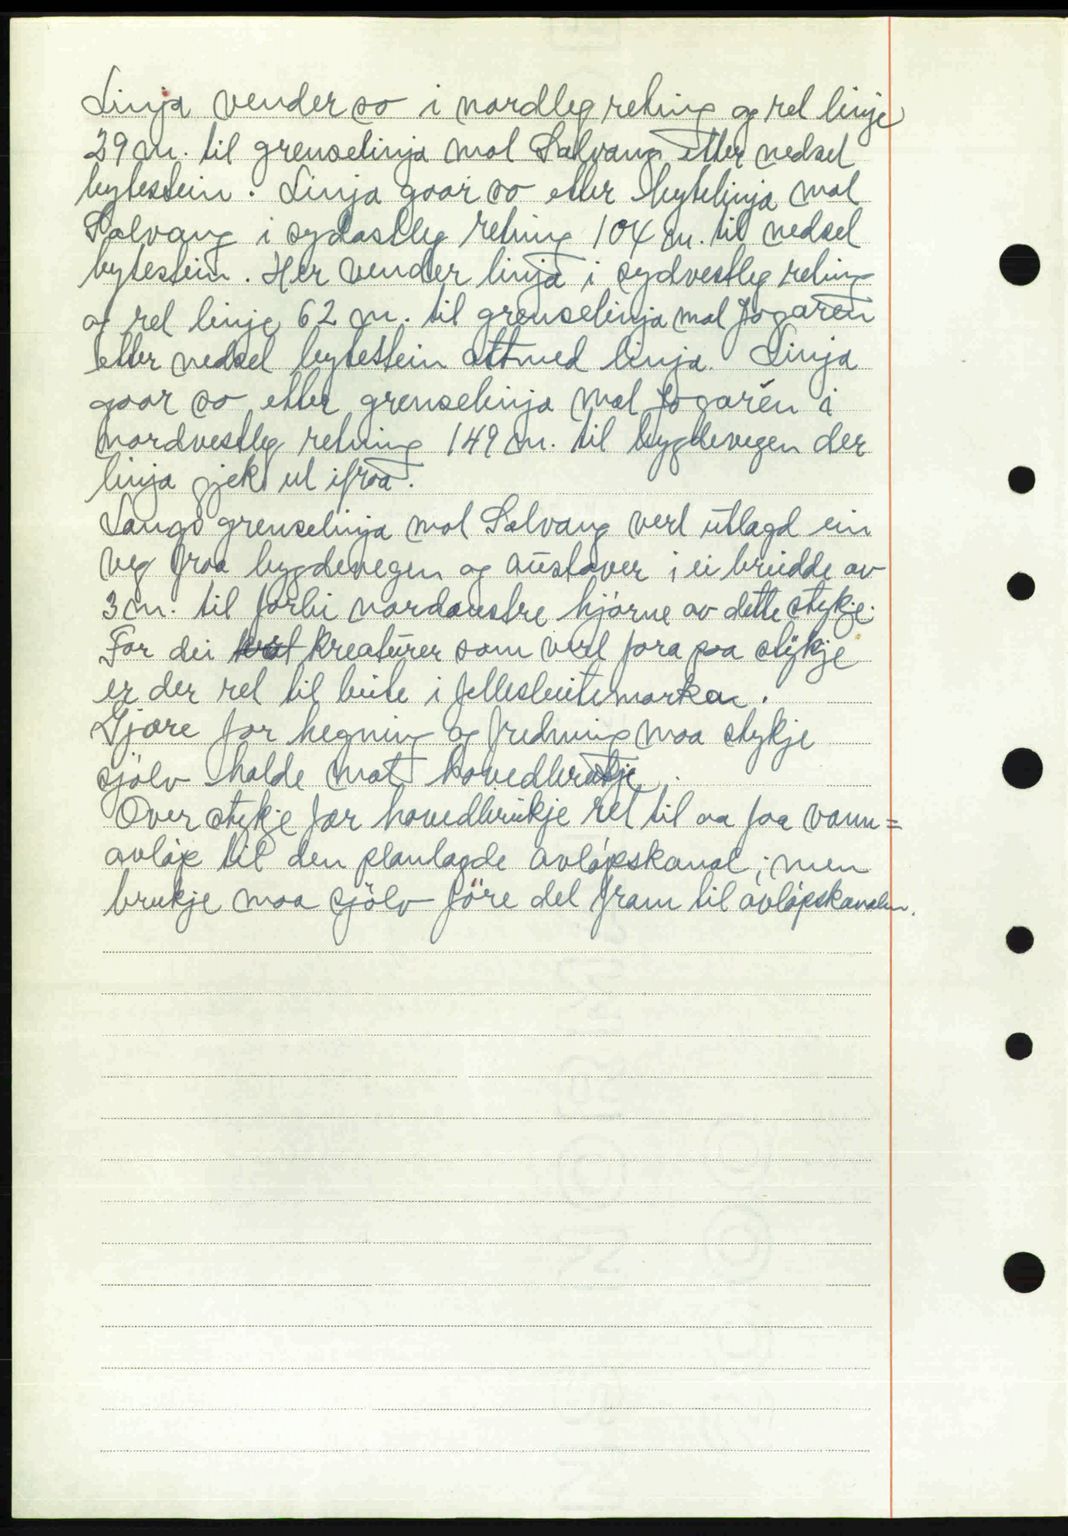 Linja vender so i nordleg retning og ret linje
39 m. til grenselinja mot Solvang etter nedset
bytestein. Linja gaar so etter bytelinja mot
Solvang i sydostleg retning 104 m. til nedset
bytestein. Her vender linja i sydvestleg retning
og ret linje 62 m. til grenselinja mot Jogaren
etter nedset bytestein attmed linja. Linja
gaar so etter grenselinja mot Jogaren i
nordvestleg retning 149 m. til bygdevegen der
linja gjekk ut ifraa.
Langs grenselinja mot Solvang vert utlagd ein
veg fraa bygdevegen og austover i ei breidde av
3 m. til forbi nordaustre hjörne av dette stykje.
For dei kreaturer som vert fora paa stykje
er der ret til beite i fellesbeitemarken.
Gjære for hegning og fredning maa stykje
sjölv halde mot hovedbrukje.
Over stykje fær hovedbrukje ret til aa faa vann=
avlöp til den planlagde avlöpskanal; men
brukje maa sjölv före det fram til avlöpskanalen.